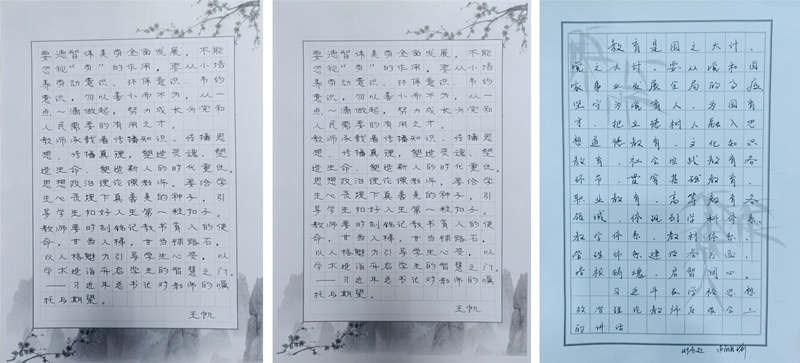 要德智体美劳全面发展，不能
忽视"劳"的作用，要从小培
养劳动意识、环保意识、节约
意识，勿以善小而不为，从一
点一滴做起，努力成长为党和
人民需要的有用之才。
教师承载着传播知识、传播思
想、传播真理，塑造灵魂、塑
造生命、塑造新人的时代重任。
思想政治理论课教师，要给学
生心灵埋下真善美的种子，引
导学生扣好人生第一粒扣子。
教师要时刻铭记教书育人的使
命，甘当人梯，甘当铺路石，
以人格魅力引导学生心灵，以
学术造诣开启学生的智慧之门。
——习近平总书记对教师的嘱
托与期望。
王帆
要德智体美劳全面发展，不能
忽视"劳"的作用，要从小培
养劳动意识、环保意识、节约
意识，勿以善小而不为，从一
点一滴做起，努力成长为党和
人民需要的有用之才。
教师承载着传播知识、传播思
想、传播真理，塑造灵魂、塑
造生命、塑造新人的时代重任。
思想政治理论课教师，要给学
生心灵埋下真善美的种子，引
导学生扣好人生第一粒扣子。
教师要时刻铭记教书育人的使
命，甘当人梯，甘当铺路石，
以人格魅力引导学生心灵，以
学术造诣开启学生的智慧之门。
——习近平总书记对教师的嘱
托与期望。
王帆
教育是国之大计、
党之大计，要从党和国
家事业发展全局的高度，
坚守为党育人、为国育
才，把立德树人融入思
想道德教育、文化知识
教育、社会实践教育各
环节，贯穿基础教育、
职业教育、高等教育各
领域，体现到学科体系、
教学体系、教材体系、
管理体系建设各方面，
培根铸魂、启智润心。
习近平在学校思想
政治理论教师座谈会上
的讲话